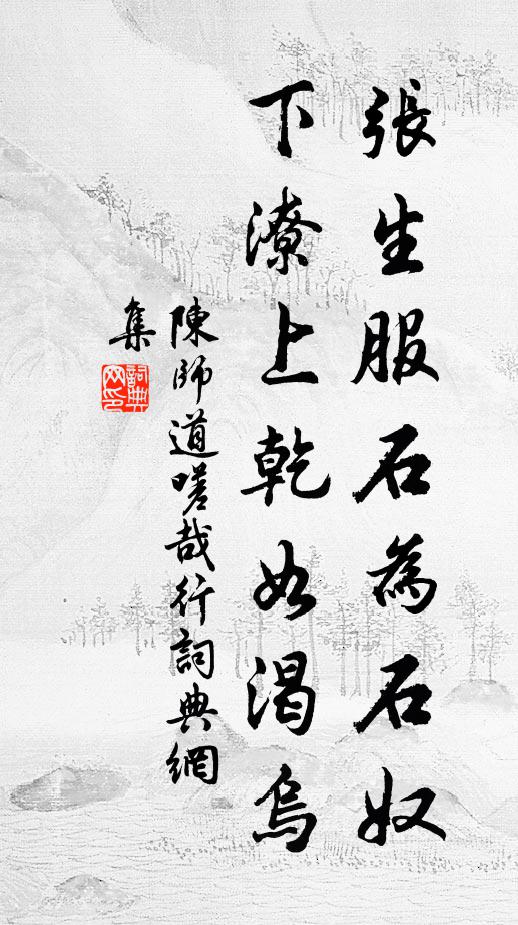 張生服石為石奴
下潦上乾如渴烏
陳師道嗟哉行詞典網
集
詞典網印